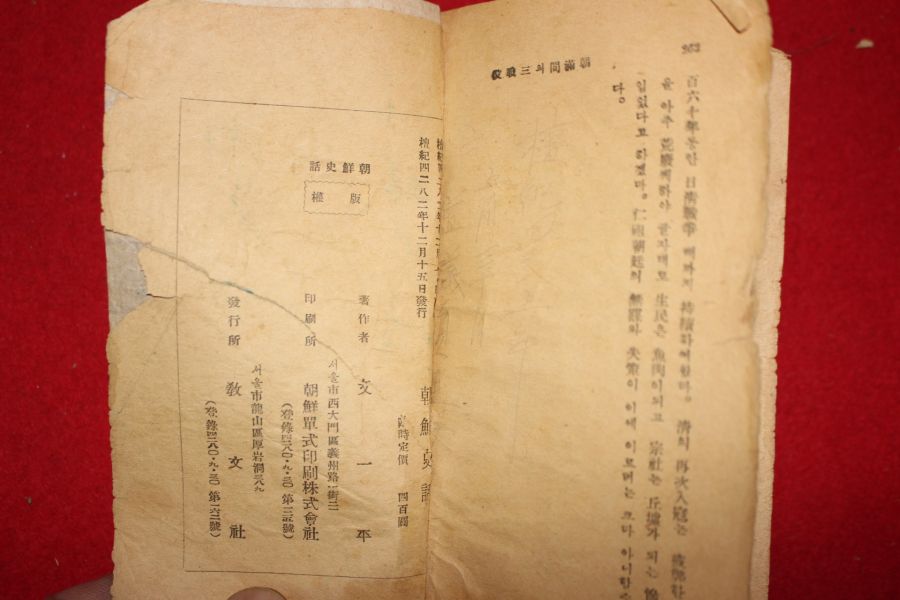 263
朝滿間의三戰役
百六十年동안 日淸戰爭 때까지 持續하에왔다。 淸의 再次入寇는
을 아주 荒廢케하야 生民은 魚肉이되고 宗社는 丘墟가 되는
입있다고 하겠다。 仁祖朝廷의 無謀와 失策이 이에 이르며는 크다 아니할
다。
檀紀四二八二年十二月十五日發行
朝鮮史話
臨時定價 四百圓
朝鮮史話
版權
著作者 文一平
서울市西大門區義州路一街二
印刷所 朝鮮單式印刷株式會社
(登錄四二八〇・九・三〇 第三五號)
서울市龍山區厚岩洞三八九
發行所 敎文社
(登錄四二八〇・九・三〇 第一六二號)